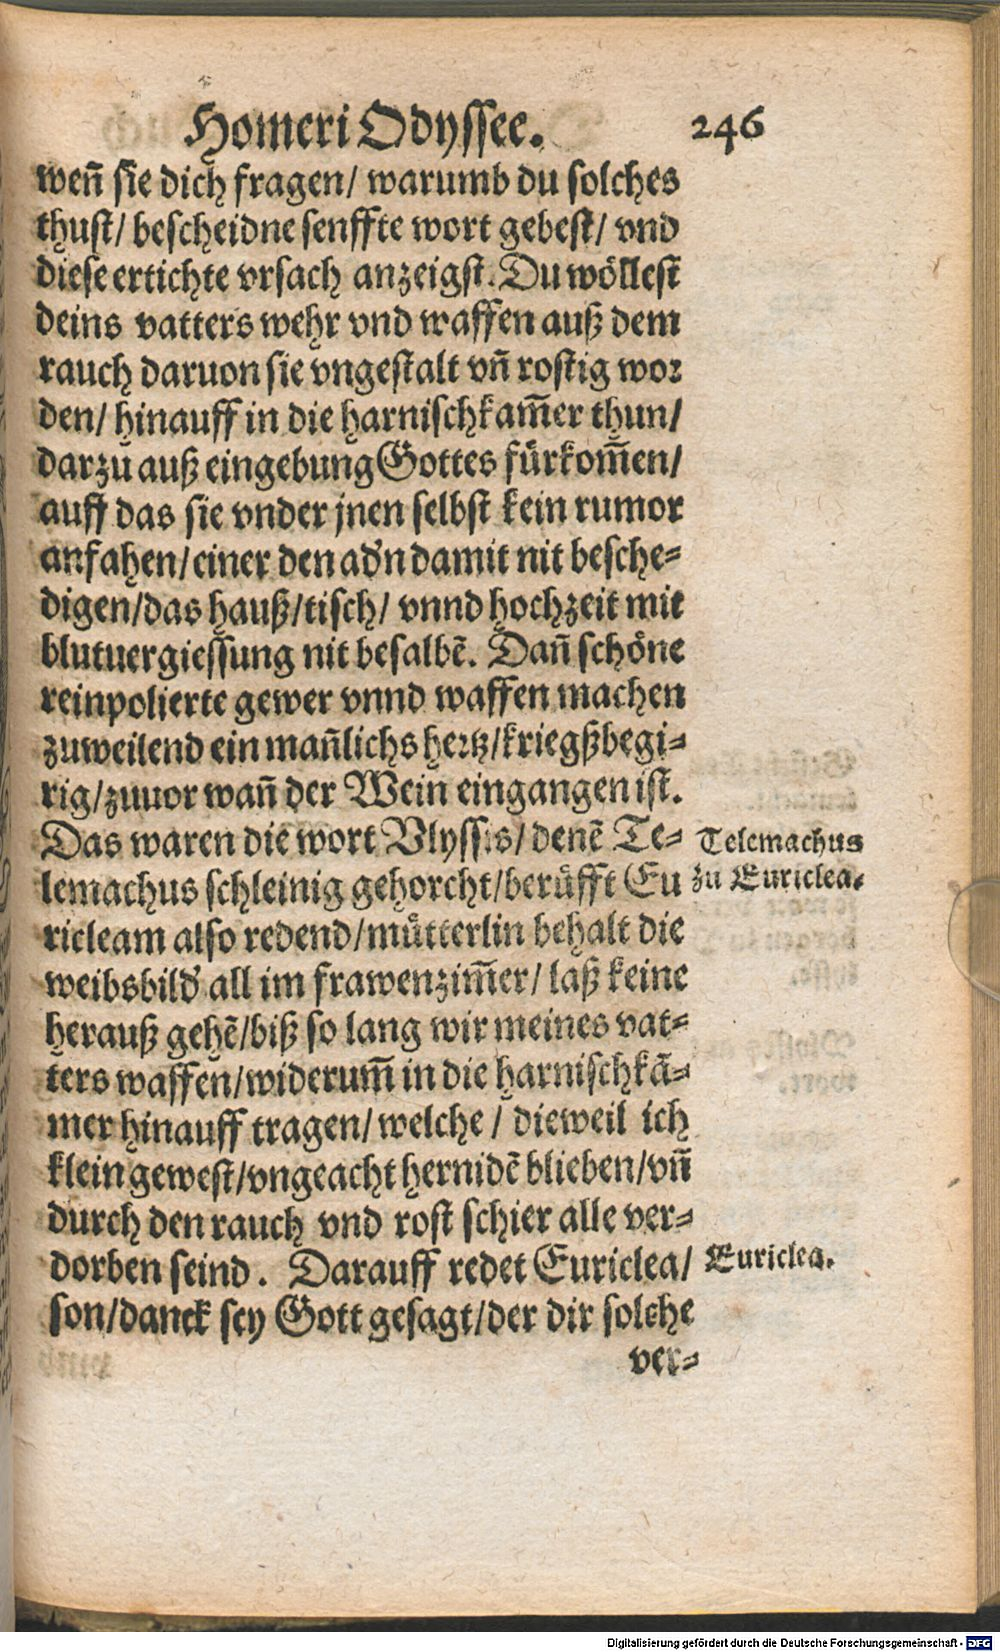 Homeri Odyssee. 246
weñ sie dich fragen/ warumb du solches
thust/ bescheidne senffte wort gebest/ vnd
diese ertichte vrsach anzeigst. Du wöllest
deins vatters wehr vnd waffen auß dem
rauch daruon sie vngestalt vñ rostig wor
den/ hinauff in die harnischkam̃er thun/
darzu auß eingebung Gottes fürkom̃en/
auff das sie vnder jnen selbst kein rumor
anfahen/ einer den ad'n damit nit besche-
digen/ das hauß/ tisch/ vnnd hochzeit mit
blutuergiessung nit besalbẽ. Dañ schöne
reinpolierte gewer vnnd waffen machen
zuweilend ein mañlichs hertz/ kriegßbegi-
rig/ zuuor wañ der Wein eingangen ist.
Das waren die wort Vlyssis/ denẽ Te-
Telemachus
lemachus schleinig gehorcht/ berüfft Eu
zu Euriclea.
ricleam also redend/ mütterlin behalt die
weibsbild' all im frawenzim̃er/ laß keine
herauß gehẽ/ biß so lang wir meines vat-
ters waffen/ widerum̃ in die harnischkã-
mer hinauff tragen/ welche / dieweil ich
klein gewest/ vngeacht hernidẽ blieben/ vñ
durch den rauch vnd rost schier alle ver-
dorben seind. Darauff redet Euriclea/
Euriclea.
son/ danck sey Gott gesagt/ der dir solche
ver-
Digitalisierung gefördert durch die Deutsche Forschungsgemeinschaft - DFG